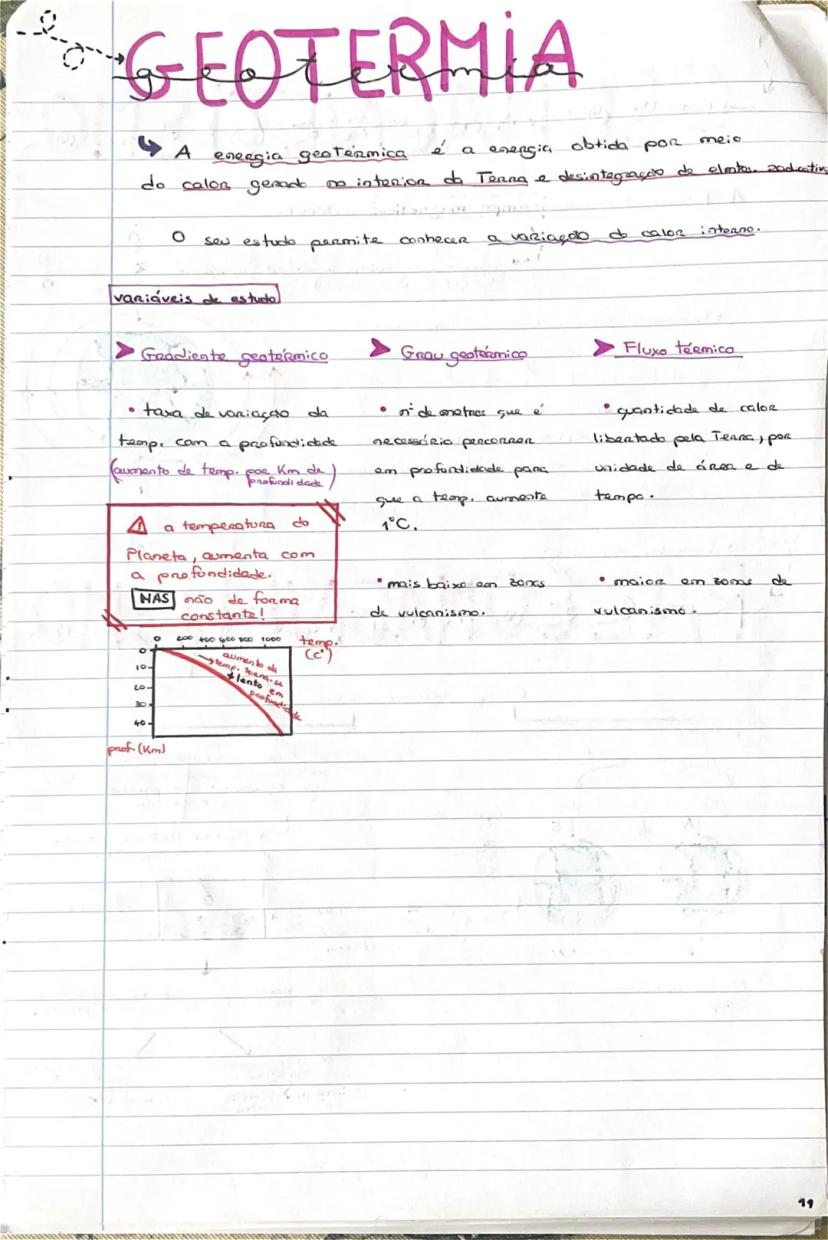 GEOTERMIA
geotermia
A energia geotérmica é a energia obtida por meio
do calor gerado no interior da Terra e desintegração de elmtos. radioativos
O seu estudo permite conhecer a variação do calor interno.
variáveis de estudo
Gradiente geotérmico
• taxa de variação da
temp. com a profundidade
(aumento de temp. por Km de
profundidade)
⚠ a temperatura do
Planeta, aumenta com
a profundidade.
MAS não de forma
constante!
0 200 400 600 800 1000 temp.
(C°)
0
10
20
30
40
aumento da
temp. torna-se
+ lento em
profundidade
prof. (Km)
Grau geotérmico
• nº de metros que é
necessário percorrer
em profundidade para
que a temp. aumente
1°C.
• mais baixo em zonas
de vulcanismo.
Fluxo térmico
• quantidade de calor
libertado pela Terra, por
unidade de área e de
tempo.
• maior em zonas de
vulcanismo.
11